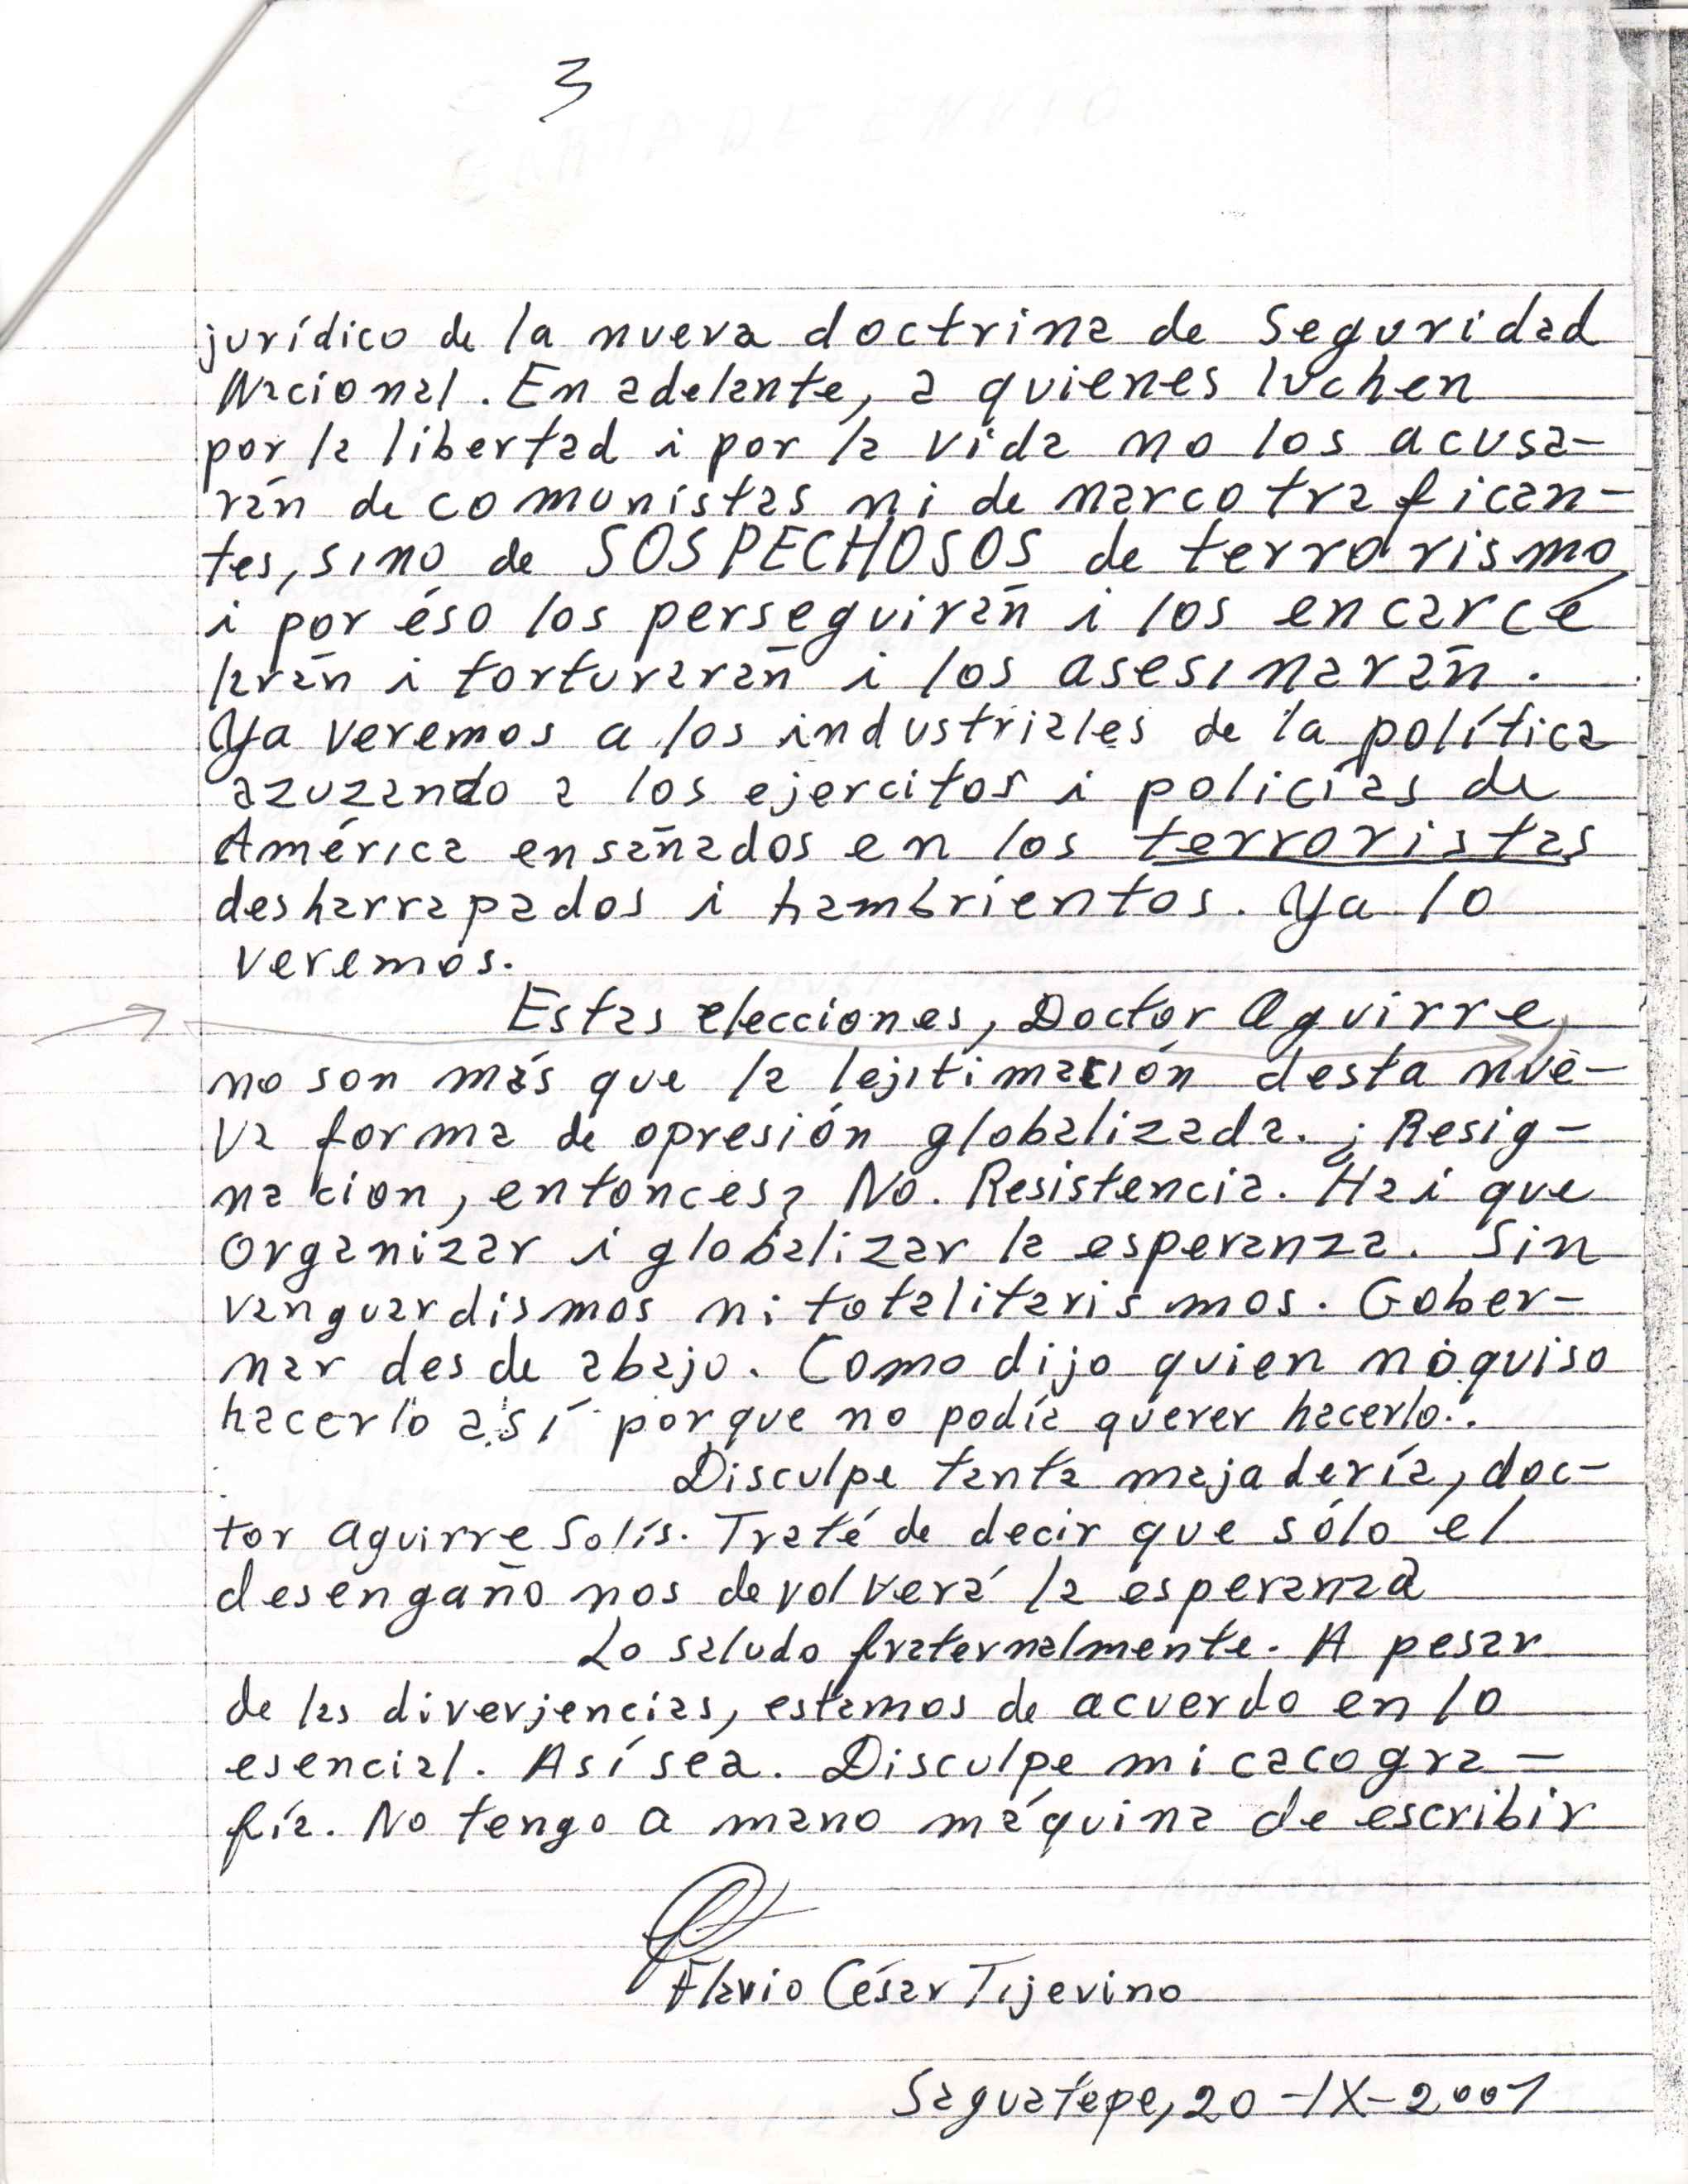 3
jurídico de la nueva doctrina de Seguridad
Nacional. En adelante, a quienes luchen
por la libertad i por la vida no los acusa-
rán de comunistas ni de narcotrafican-
tes, sino de SOSPECHOSOS de terrorismo
i por éso los perseguirán i los encarce
larán i torturarán i los asesinarán.
Ya veremos a los industriales de la política
azuzando a los ejercitos i policías de
América ensañados en los terroristas
desharrapados i hambrientos. Ya lo
veremos.
Estas elecciones, Doctor Aguirre,
no son más que la lejitimación desta nue-
va forma de opresión globalizada. ¿Resig-
nacion, entonces? No. Resistencia. Hai que
Organizar i globalizar la esperanza. Sin
vanguardismos ni totalitarismos. Gober-
nar desde abajo. Como dijo quien no quiso
hacerlo así porque no podía querer hacerlo..
Disculpe tanta majadería, doc-
tor Aguirre Solís. Traté de decir que sólo el
desengaño nos devolverá la esperanza
Lo saludo fraternalmente. A pesar
de las diverjencias, estamos de acuerdo en lo
esencial. Así sea. Disculpe mi cacogra-
fía. No tengo a mano máquina de escribir
Flavio César Tijerino
Saguatepe, 20-IX-2001